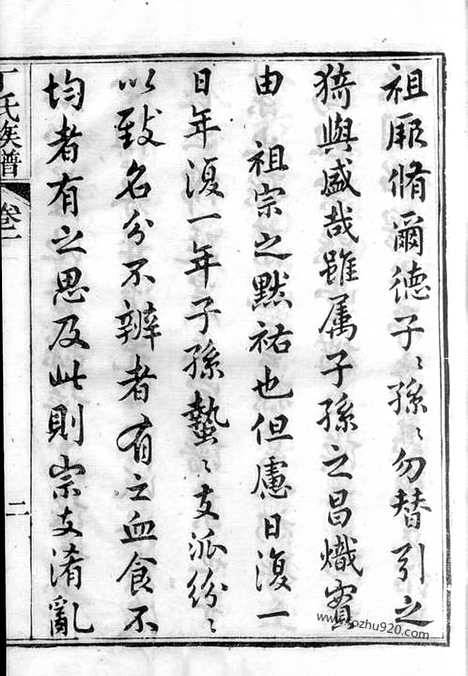 祖聿脩爾德子〻孫〻勿替引之
猗與盛哉雖属子孫之昌熾實
由　祖宗之默祐也但慮日復一
日年復一年子孫蟄〻支派紛〻
以致名分不辨者有之血食不
均者有之思及此則宗支淆亂
丁氏族譜
卷一
二
www.kozhu920.com